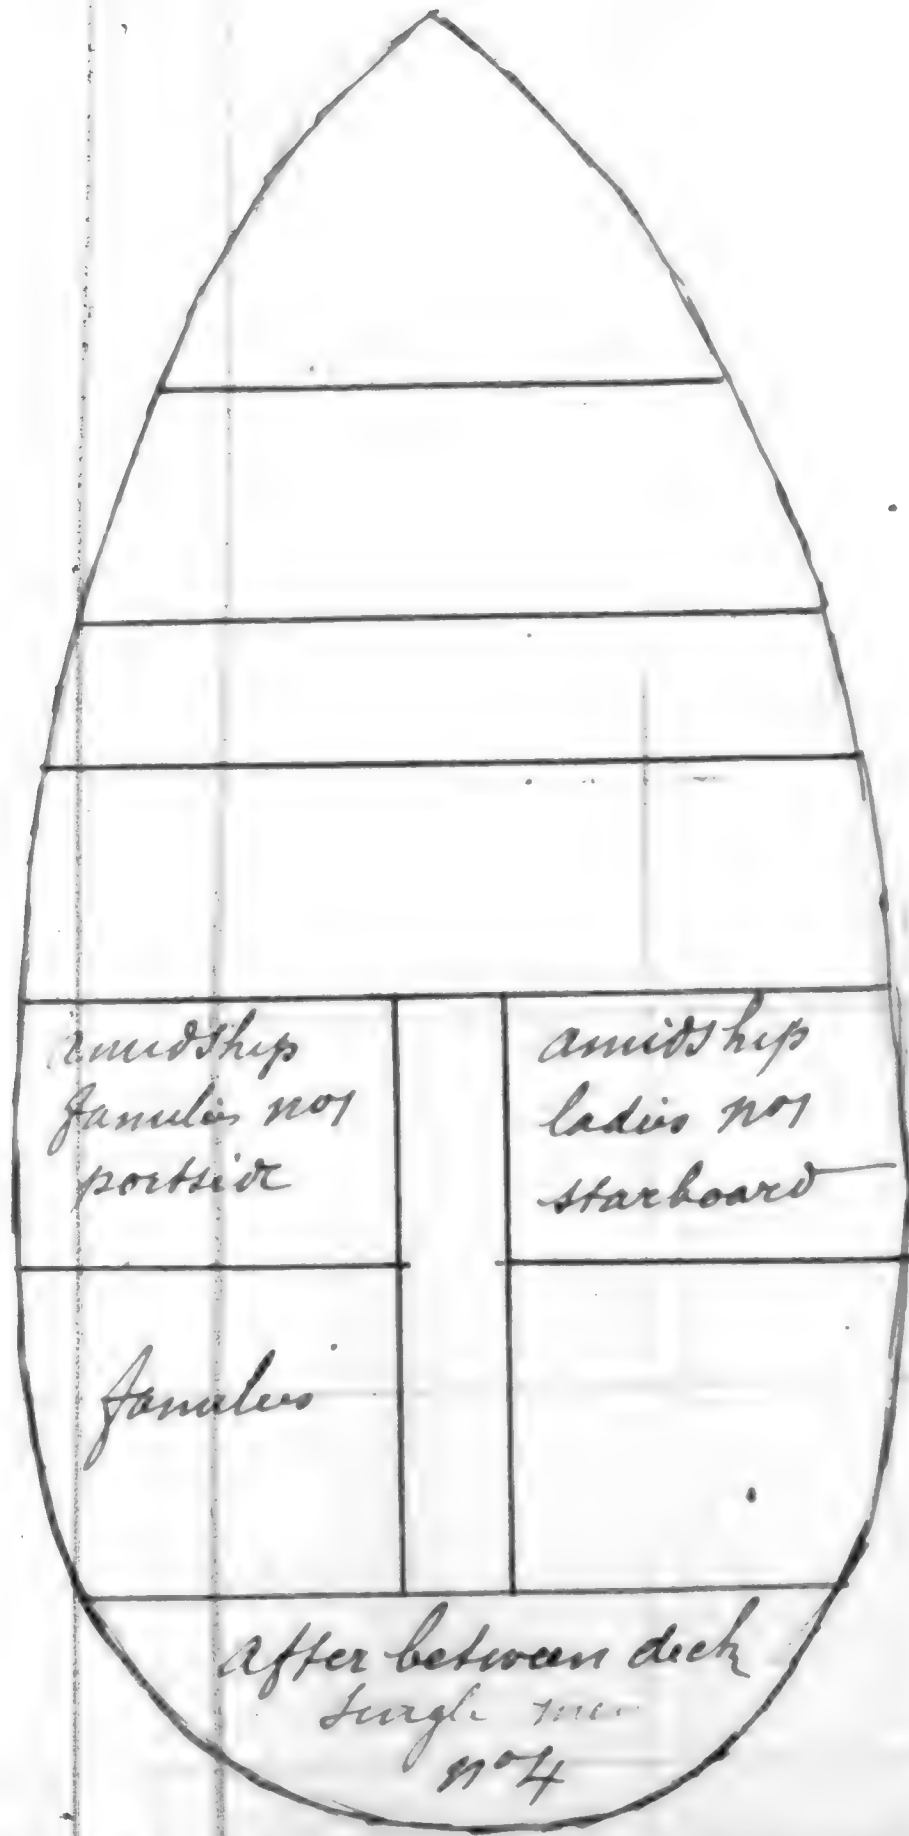 amidship
families no 1
portside
amidship
ladies no 1
starboard
families
After between deck
single men
no 4